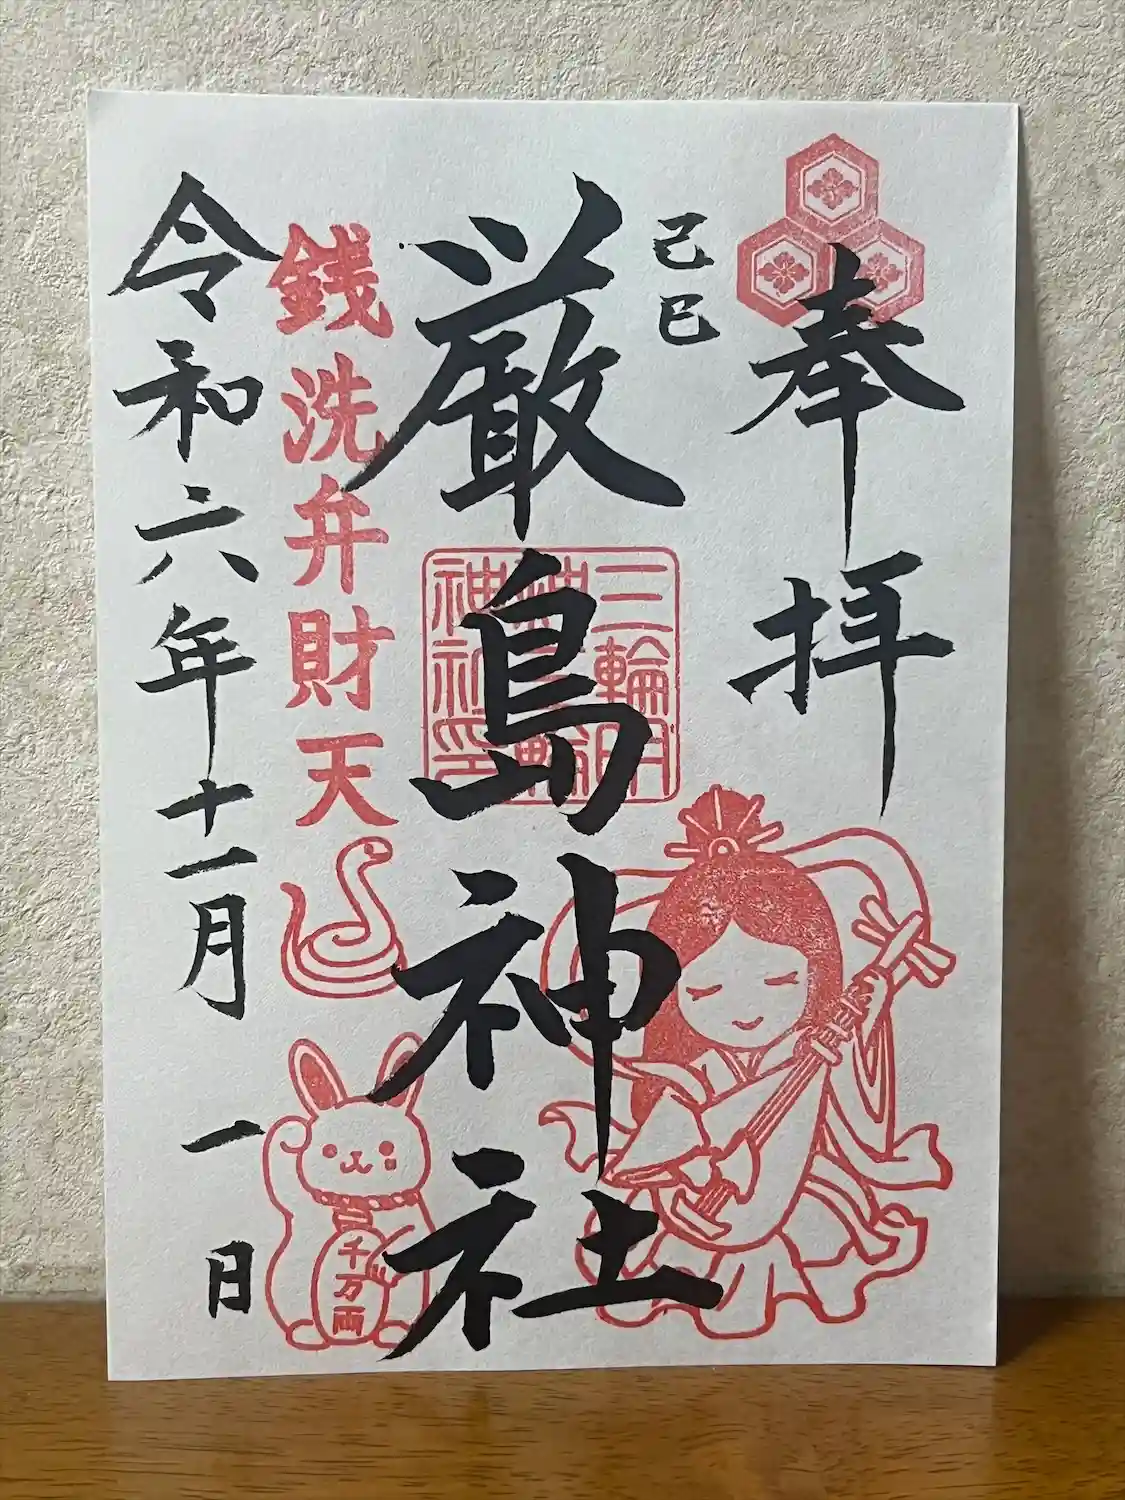 奉拝
己巳
厳島神社
銭洗弁財天
令和六年十一月一日
千万両